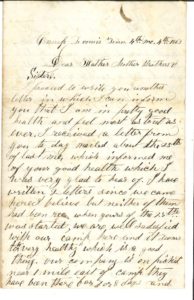 Camp Dennis Tenn 4th mo. 4th 1863
Dear Mother Father Brothers &
Sisters,
I proceed to write you another
letter in which I can inform
you that I am in pretty good
health and feel most as stout as
ever. I received a letter from
you to day mailed about the 25th
of last mo, which informed me
of your good health which I
was very glad to hear of. I have
written 2 letters since we came
here I believe but neither of them
had been rec. when yours of the 25th
was started, we are well satisfied
with our camp here and it seems
to be very healthy which is a good
thing. our company is on picket
near 1 mile east of camp they
have been there for 8 days and